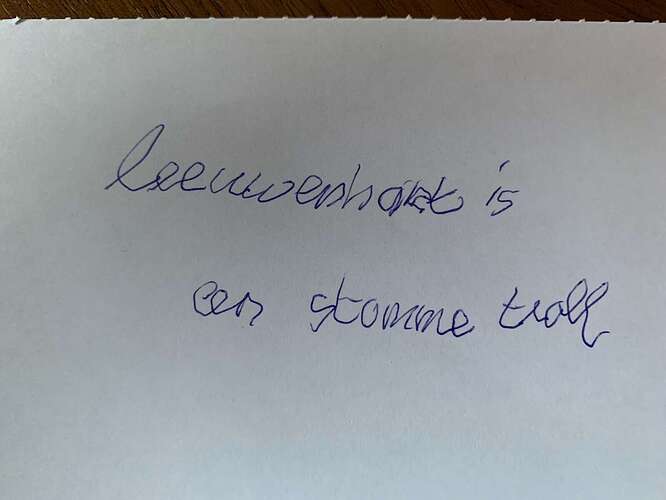 leeuwenhart is
een stomme troll